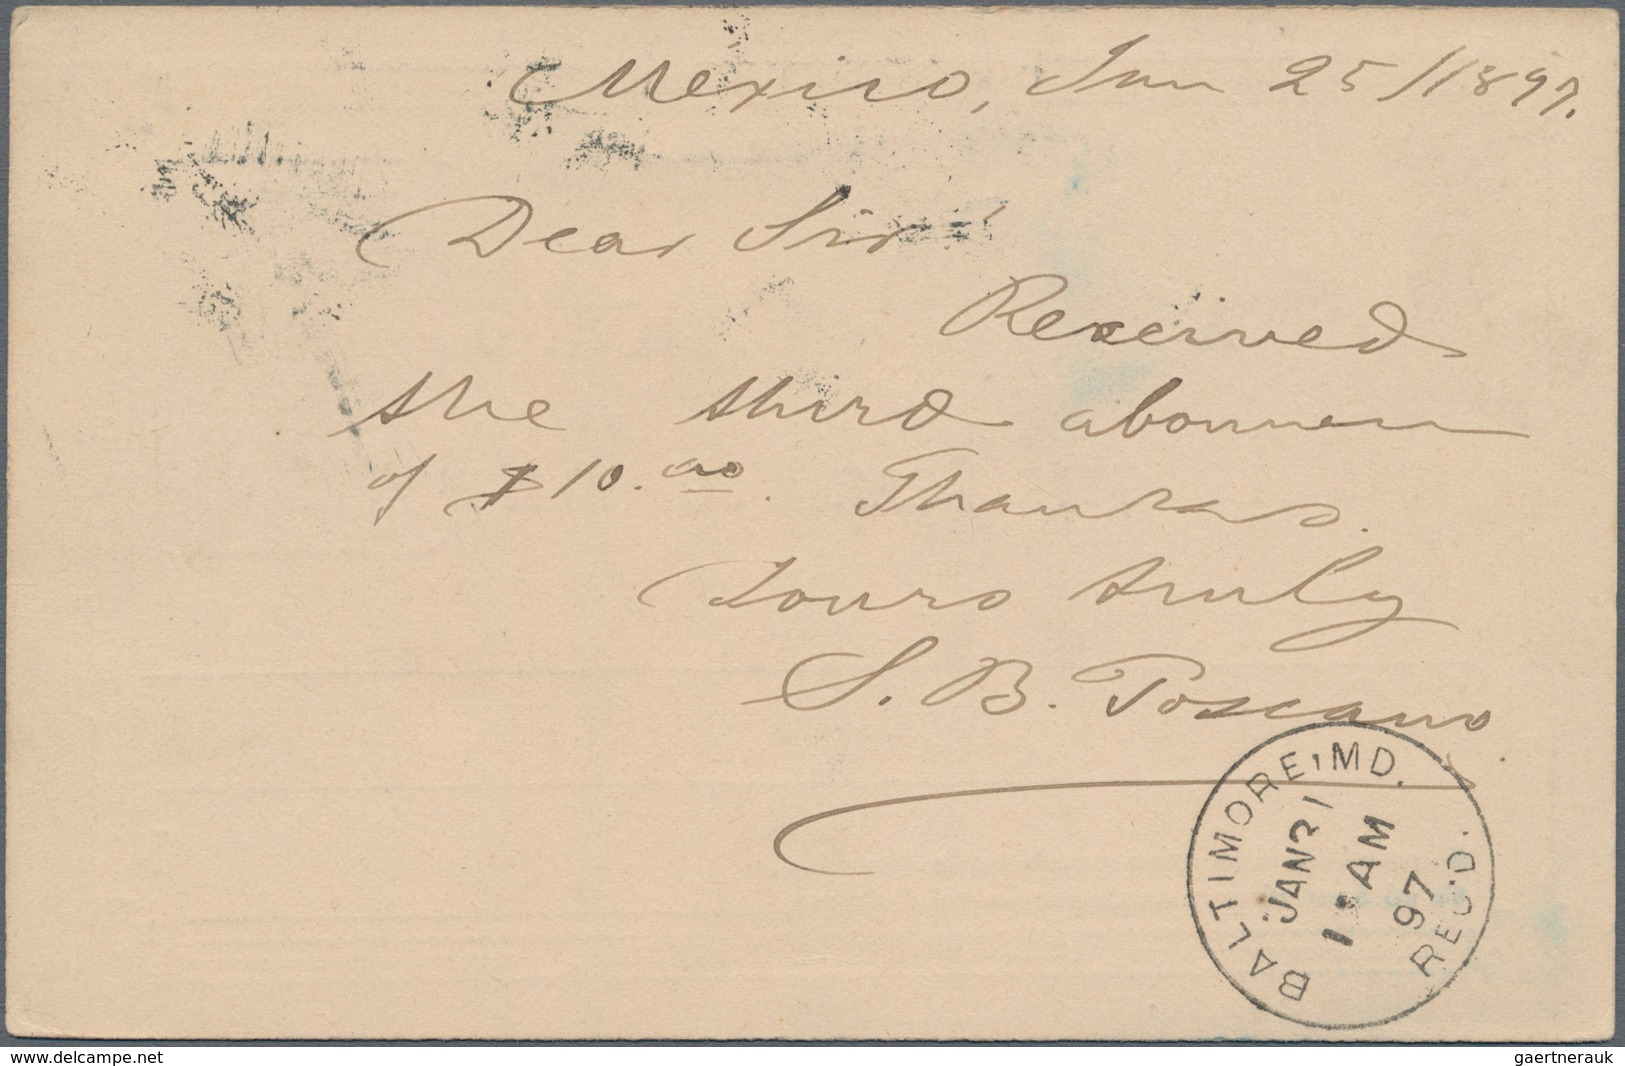 Mexico, Jan 25/1897.
Dear Sir!
Received
the third abonnem
of $10.00. Thanks.
Yours truly
S. B. Toscano
BALTIMORE, MD.
JAN 31
1 AM
97
REC'D.
www.delcampe.net
gaertnerauk